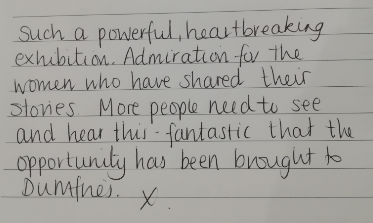 Such a powerful, heartbreaking
exhibition. Admiration for the
women who have shared their
stories. More people need to see
and hear this - fantastic that the
opportunity has been brought to
Dumfries. X.